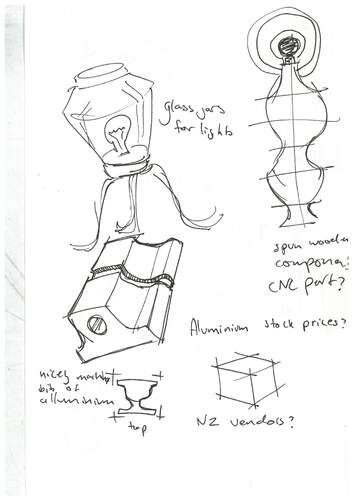 glass jars
for lights
spun wooden
componen
CNC part?
Aluminium stock prices?
nicely machined
bits of
alluminium
top
NZ vendors?